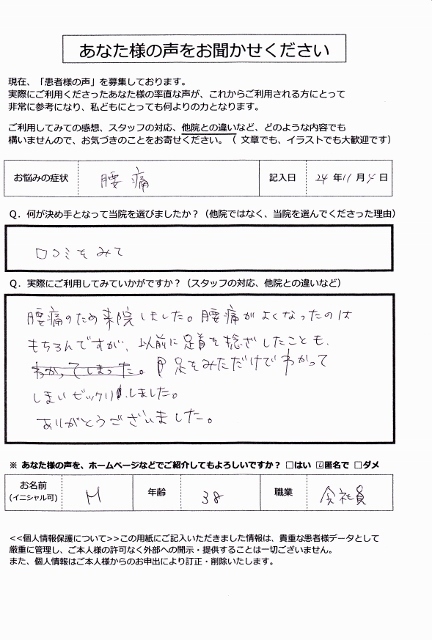 あなた様の声をお聞かせください
現在、「患者様の声」を募集しております。
実際にご利用くださったあなた様の率直な声が、これからご利用される方にとって
非常に参考になり、私どもにとっても何よりの力となります。
ご利用してみての感想、スタッフの対応、他院との違いなど、どのような内容でも
構いませんので、お気づきのことをお寄せください。（文章でも、イラストでも大歓迎です）
お悩みの症状 腰痛 記入日 24年11月5日
Q．何が決め手となって当院を選びましたか？（他院ではなく、当院を選んでくださった理由）
口コミをみて
Q．実際にご利用してみていかがですか？（スタッフの対応、他院との違いなど）
腰痛のため来院しました。腰痛がよくなったのは
もちろんですが、以前に足首を捻ざしたことも、
わかってしまった。足をみただけでわかって
しまいビックリしました。
ありがとうございました。
※ あなた様の声を、ホームページなどでご紹介してもよろしいですか？ □はい ☑匿名で □ダメ
お名前 M 年齢 38 職業 会社員
(イニシャル可)
<<個人情報保護について>>この用紙にご記入いただきました情報は、貴重な患者様データとして
厳重に管理し、ご本人様の許可なく外部への開示・提供することは一切ございません。
また、個人情報はご本人様からのお申出により訂正・削除いたします。